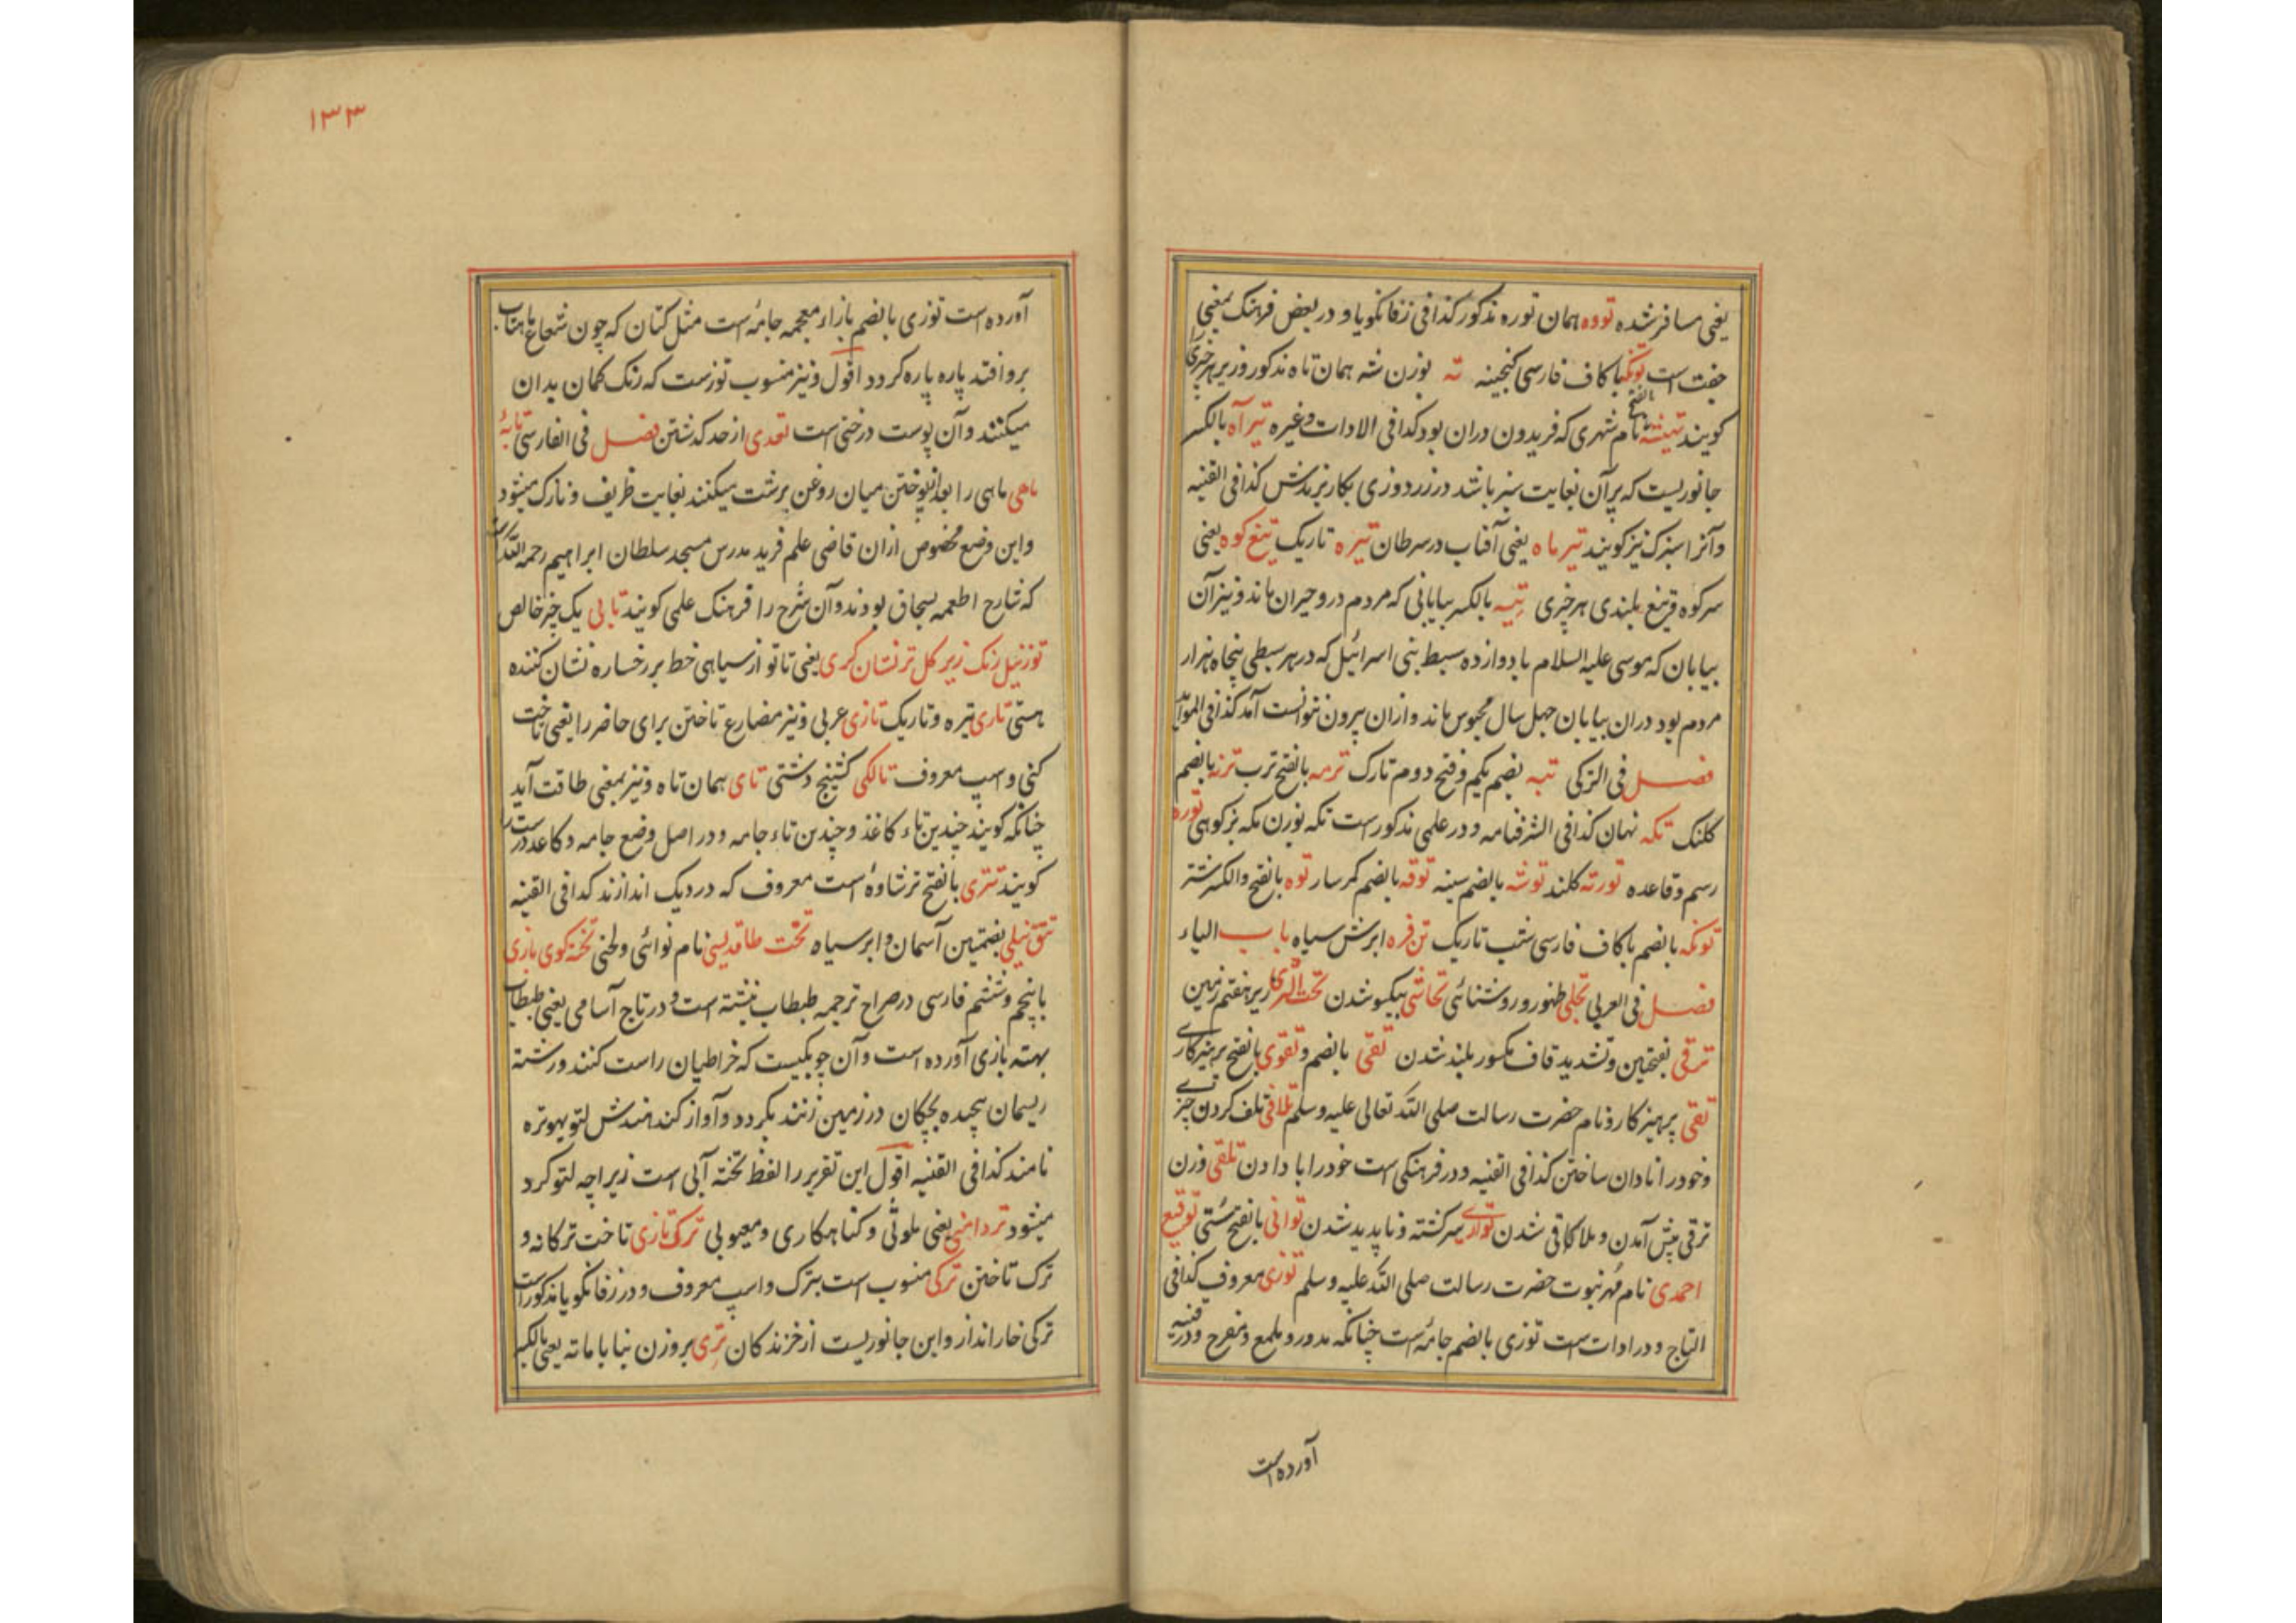 یعنی مسافر شده تووه همان توره مذکور کذا فی زفانکویا و در بعض فرهنک بمعنی
جفت است با کاف فارسی کنجینه ته بوزن شه همان تاه مذکور و زیر هر چیزی
کویند بالفتح نام شهری که فریدون دران بود کذا فی الادات وغیره تیر آه بالکسر
جانوریست که پر آن بغایت سبز باشد در زردوزی بکار برندش کذا فی القنیه
و آنرا سبزک نیز کویند تیر ماه یعنی آفتاب در سرطان تیره تاریک تیغ کوه یعنی
سر کوه و تیغ بلندی هر چیزی تیه بالکسر بیابانی که مردم درو حیران ماند و نیز آن
بیابان که موسی علیه السلام با دوازده سبط بنی اسرائیل که در هر سبطی پنجاه هزار
مردم بود دران بیابان چهل سال محبوس ماند و ازان بیرون نتوانست آمد کذا فی الموائد
فصل فی الترکی تپه بضم یکم و فتح دوم تارک ترمه بالفتح ترب ترنه بالضم
کلنک تکه نهان کذا فی الشرفنامه و در علمی مذکور است تکه بوزن مکه بز کوهی توره
رسم و قاعده تورته کلند توشه بالضم سینه توقه بالضم کمر سار توه بالفتح والکسر شتر
تونکه بالضم با کاف فارسی شب تاریک تن فره ابرش سیاه باب الیاء
فصل فی العربی تجلی ظهور و روشنائی تحاشی بیکسو شدن تحت الثری زیر هفتم زمین
ترقی بفتحتین و تشدید قاف مکسور بلند شدن تقی بالضم و تقوی بالفتح پرهیزکاری
تقی پرهیزکار و نام حضرت رسالت صلی الله تعالی علیه وسلم تلافی تلف کردن چیزی
و خود را نادان ساختن کذا فی القنیه و در فرهنکی است خود را با دادن تلقی وزن
ترقی پیش آمدن و ملاقاتی شدن تواری سرکشته و ناپدید شدن توانی بالفتح سستی توقیع
احمدی نام مهر نبوت حضرت رسالت صلی الله علیه وسلم توزی معروف کذا فی
التاج و در ادات است توزی بالضم جامه است چنانکه مدور و ملمع و مفرح و در قنیه
آورده است
۱۳۳
آورده است توزی بالضم بازاء معجمه جامه است مثل کتان که چون شعاع ماهتاب
برو افتد پاره پاره کردد اقول و نیز منسوب توزست که رنک کمان بدان
میکنند و آن پوست درختی است تعدی از حد کذشتن فصل فی الفارسی تابهٔ
ماهی ماهی را بعد میان روغن برشت میکنند بغایت ظریف و نازک میشود
و این وضع مخصوص ازان قاضی علم فرید مدرس مسجد سلطان ابراهیم رحمه الله است
که شارح اطعمه بسحاق بودند و آن شرح را فرهنک علمی کویند تابی یک چیز خالص
تو ز نیل رنک زیر کل تر نشان کری یعنی تا تو از سیاهی خط بر رخساره نشان کننده
هستی تاری تیره و تاریک تازی عربی و نیز مضارع تاختن برای حاضر را یعنی تاخت
کنی و اسپ معروف تالکی کشنیج دشتی تای همان تاه و نیز بمعنی طاقت آید
چنانکه کویند چندین تاء کاغذ و چندین تاء جامه و در اصل وضع جامه و کاغذ درست را
کویند تتری بالفتح ترشاوهٔ است معروف که در دیک اندازند کذا فی القنیه
تتق نیلی بضمتین آسمان و ابر سیاه تخت طاقدیسی نام نوائی و لحنی تخته کوی بازی
با پنجم و ششم فارسی در صراح ترجمه طبطاب نبشته است و در تاج آسامی یعنی طبطاب
بهته بازی آورده است و آن چوبکیست که خراطیان راست کنند و رشته
ریسمان پیچیده بچکان در زمین زنند بکردد و آواز کند هندش لتو بهوتره
نامند کذا فی القنیه اقول این تقریر را لفظ تخته آبی است زیراچه لتو کرد
میشود تردامنی یعنی ملوثی و کناهکاری و معیوبی ترک تازی تاخت ترکانه و
ترک تاختن ترکی منسوب است بترک و اسپ معروف و در زفانکویا مذکور است
ترکی خار انداز و این جانوریست از خزندکان تری بر وزن نیا با ماته یعنی بالکسر